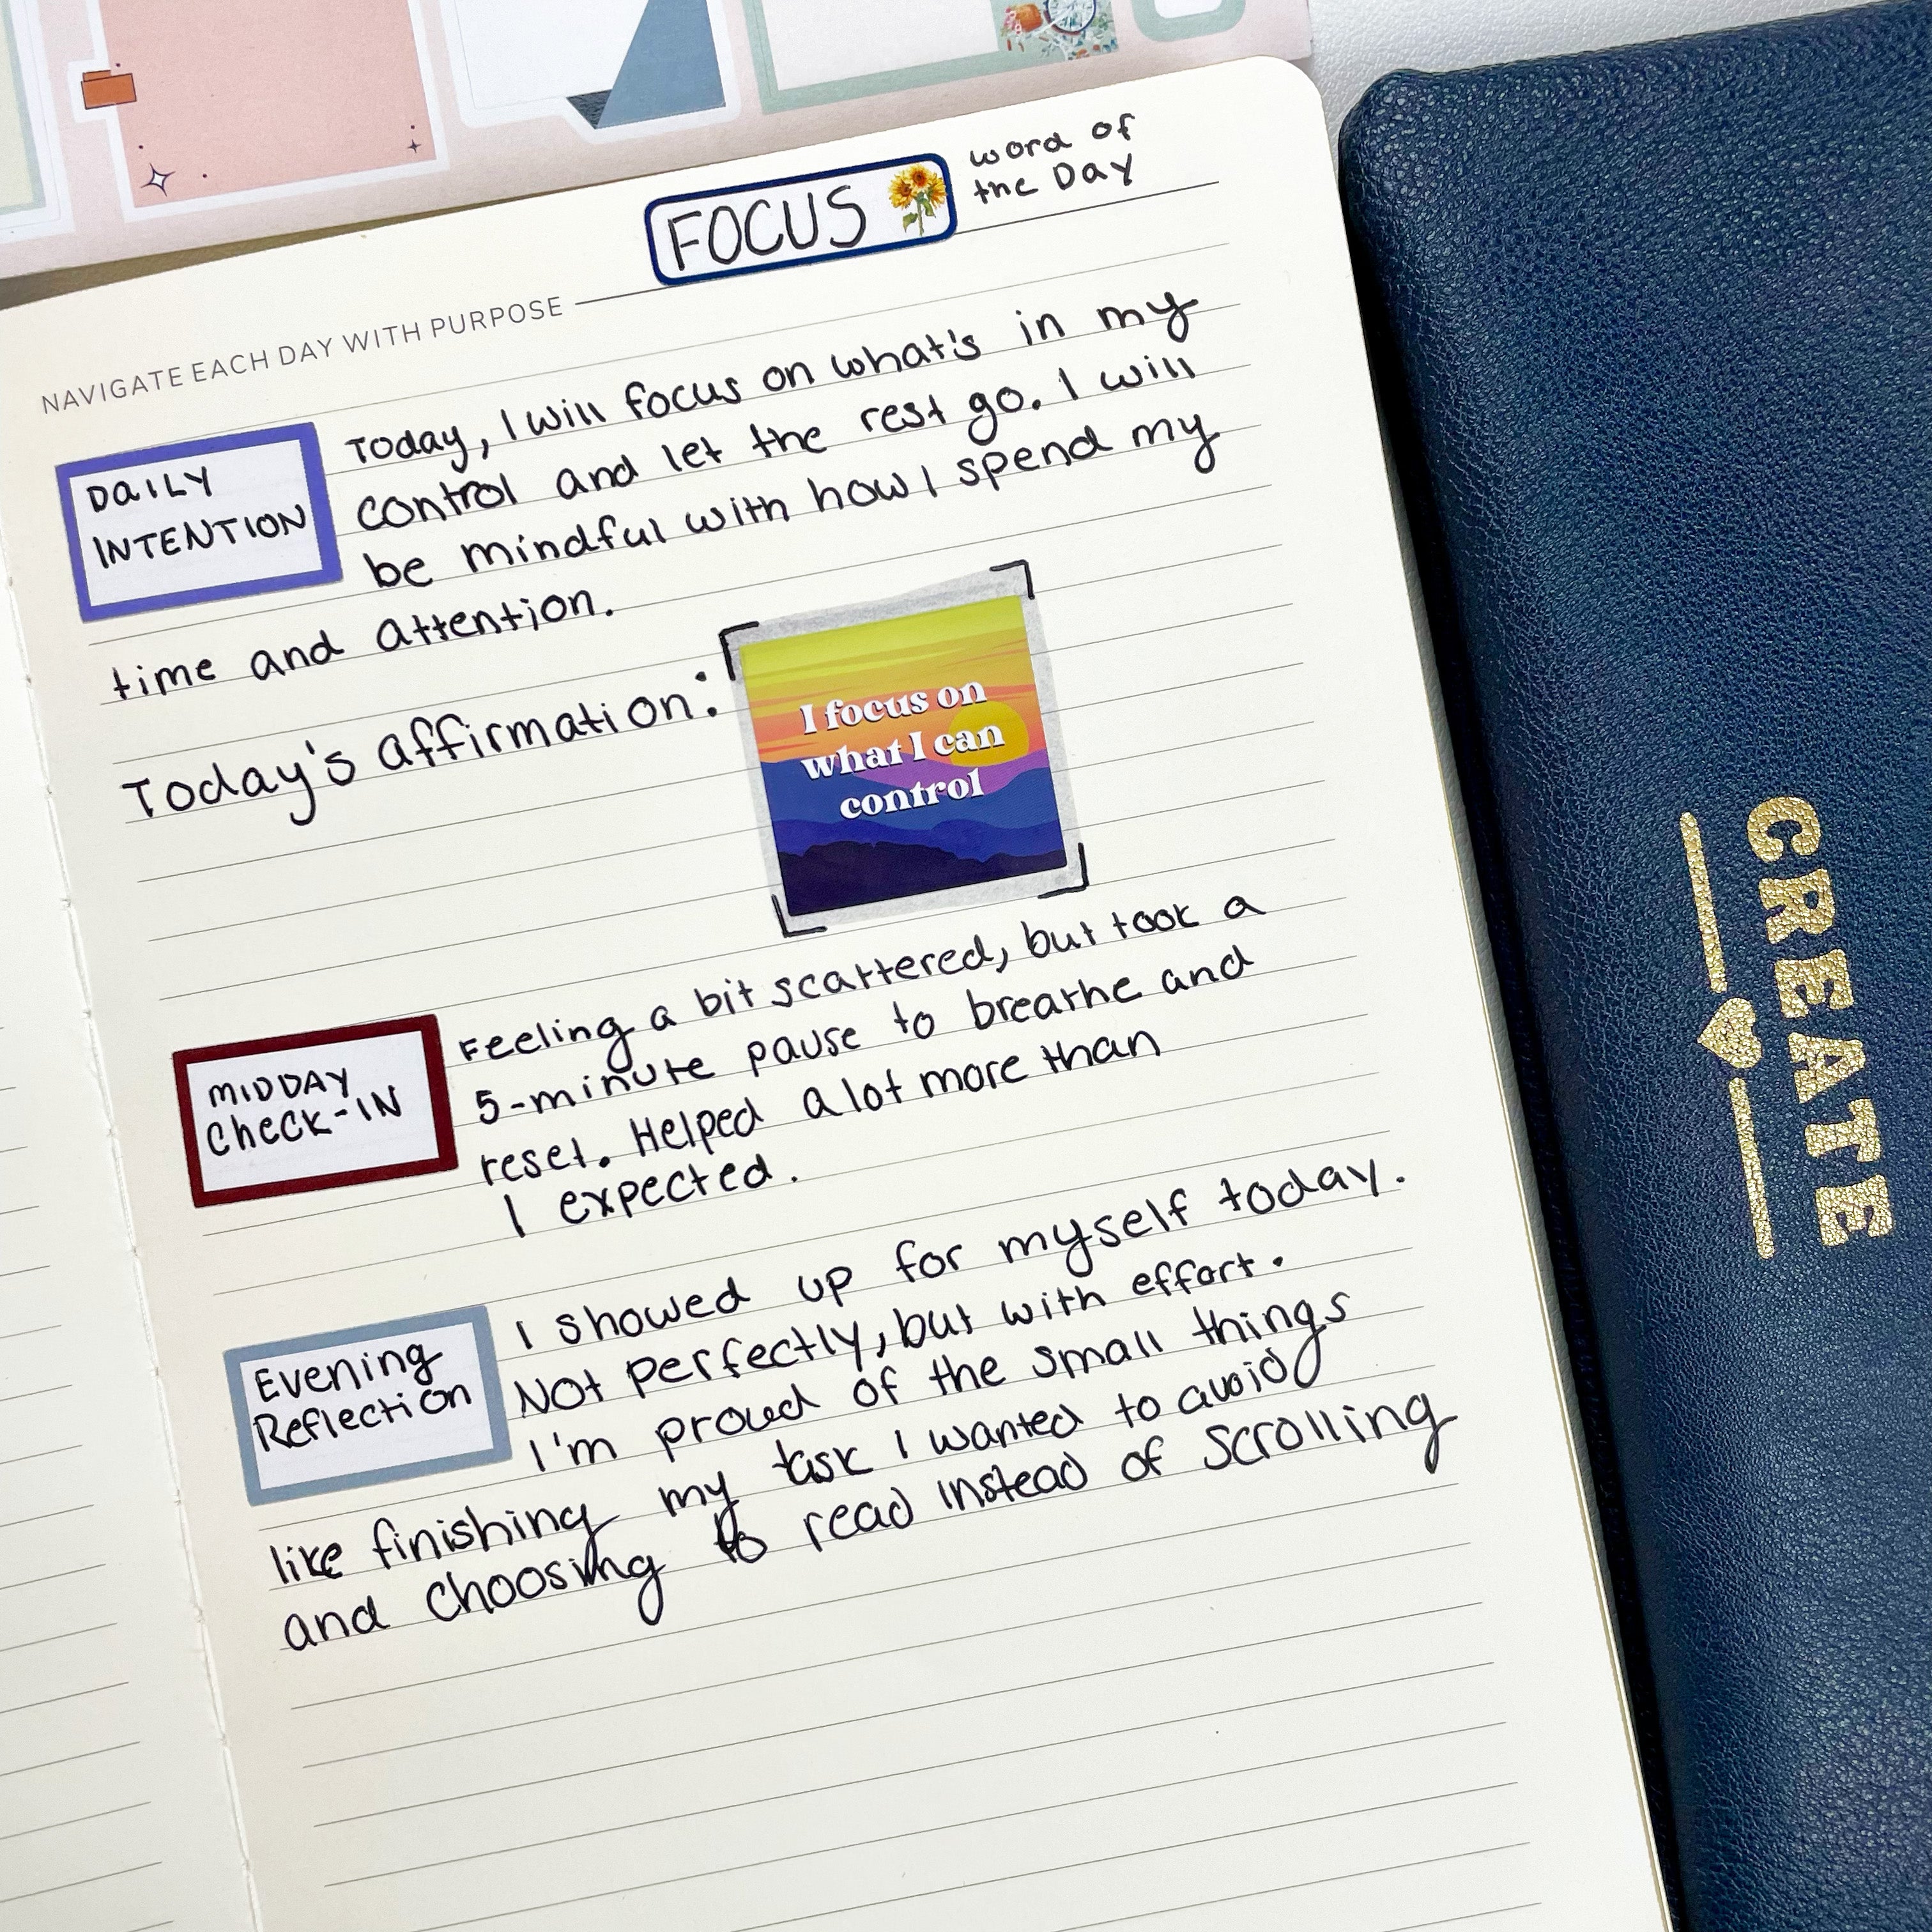 word of
the Day
FOCUS
NAVIGATE EACH DAY WITH PURPOSE
DAILY
INTENTION
Today, I will focus on what's in my
control and let the rest go. I will
be mindful with how I spend my
time and attention.
Today's affirmation:
I focus on
what I can
control
MIDDAY
CHECK-IN
Feeling a bit scattered, but took a
5-minute pause to breathe and
reset. Helped a lot more than
I expected.
Evening
Reflection
I showed up for myself today.
Not perfectly, but with effort.
I'm proud of the small things
like finishing my task I wanted to avoid
and choosing to read instead of scrolling
CREATE